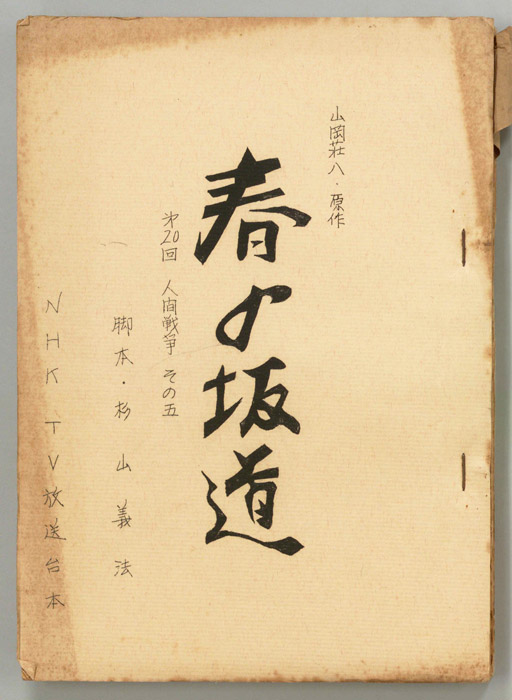 山岡荘八・原作
春の坂道
第20回 人間戦争 その五
脚本・杉山義法
NHK TV放送台本